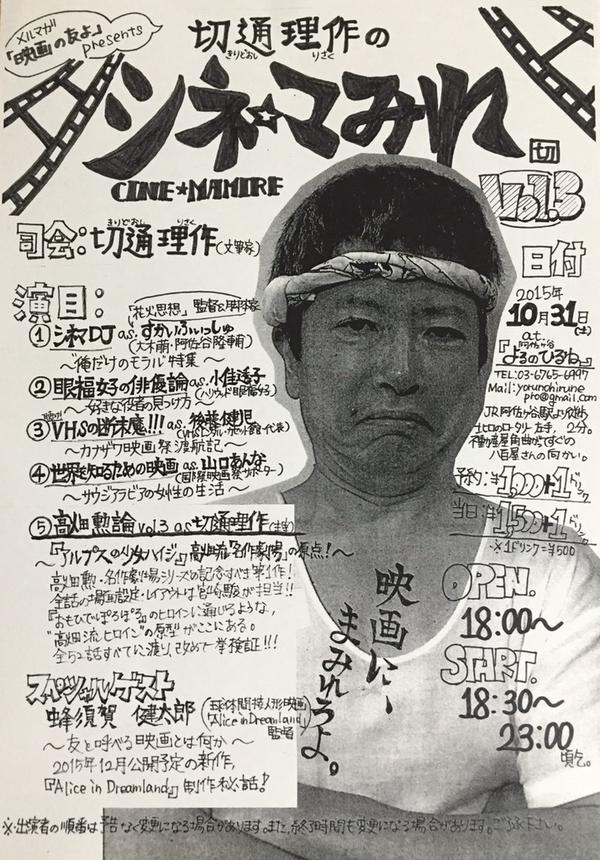 メルマガ
「映画の友よ」
presents
切通理作の
きりどおし りさく
シネ☆マみれ
切
CINE★MAMIRE
Vol.3
きりどおし りさく
司会:切通理作(文筆家)
演目:
「花火思想」監督&脚本家
①シネマDJ as.すかぶぃぃっしゅ
(大木萌・阿佐谷隆輔)
〜"俺だけのモラル"特集〜
②眼福女子の俳優論 as.小佳透子
(ハリウッド眼福女子)
〜好きな役者の見つけ方〜
③VHSの断末魔!!! as.後藤健児
〜カナザワ映画祭渡航記〜
④世界を知るための映画 as.山口あんな
(国際映画祭サポーター)
〜サウジアラビアの女性の生活〜
⑤高畑勲論vol.3 as切通理作
〜『アルプスの少女ハイジ』高畑流"名作劇場"の原点!〜
高畑勲・名作劇場シリーズの記念すべき第1作!
全話の場面設定・レイアウトは宮崎駿が担当!!
『おもひでぽろぽろ』のヒロインに通じるような、
"高畑流ヒロイン"の原型がここにある。
全52話すべてに渡り、改めて一挙検証!!!
スペシャルゲスト
蜂須賀 健太郎
(球体関節人形映画
「Alice in Dreamland」
監督)
〜友と呼べる映画とは何か〜
2015年12月公開予定の新作、
『Alice in Dreamland』制作秘話!
映画に、
まみれろよ。
日付
2015年
10月31日(土)
at.
阿佐ヶ谷
『よるのひるね』
TEL:03-6765-6997
Mail:yorunohirune
pro@gmail.com
JR阿佐ヶ谷駅より徒歩
北口ロータリー左手,2分。
不動産屋角曲がってすぐの
八百屋さんの向かい。
予約:¥1,000+1ドリンク
当日:¥1,500+1ドリンク
※1ドリンク=¥500
OPEN.
18:00〜
START.
18:30〜
23:00
頃迄。
※・出演者の順番は予告なく変更になる場合があります。また、終了時間も変更になる場合があります。ご了承下さい。